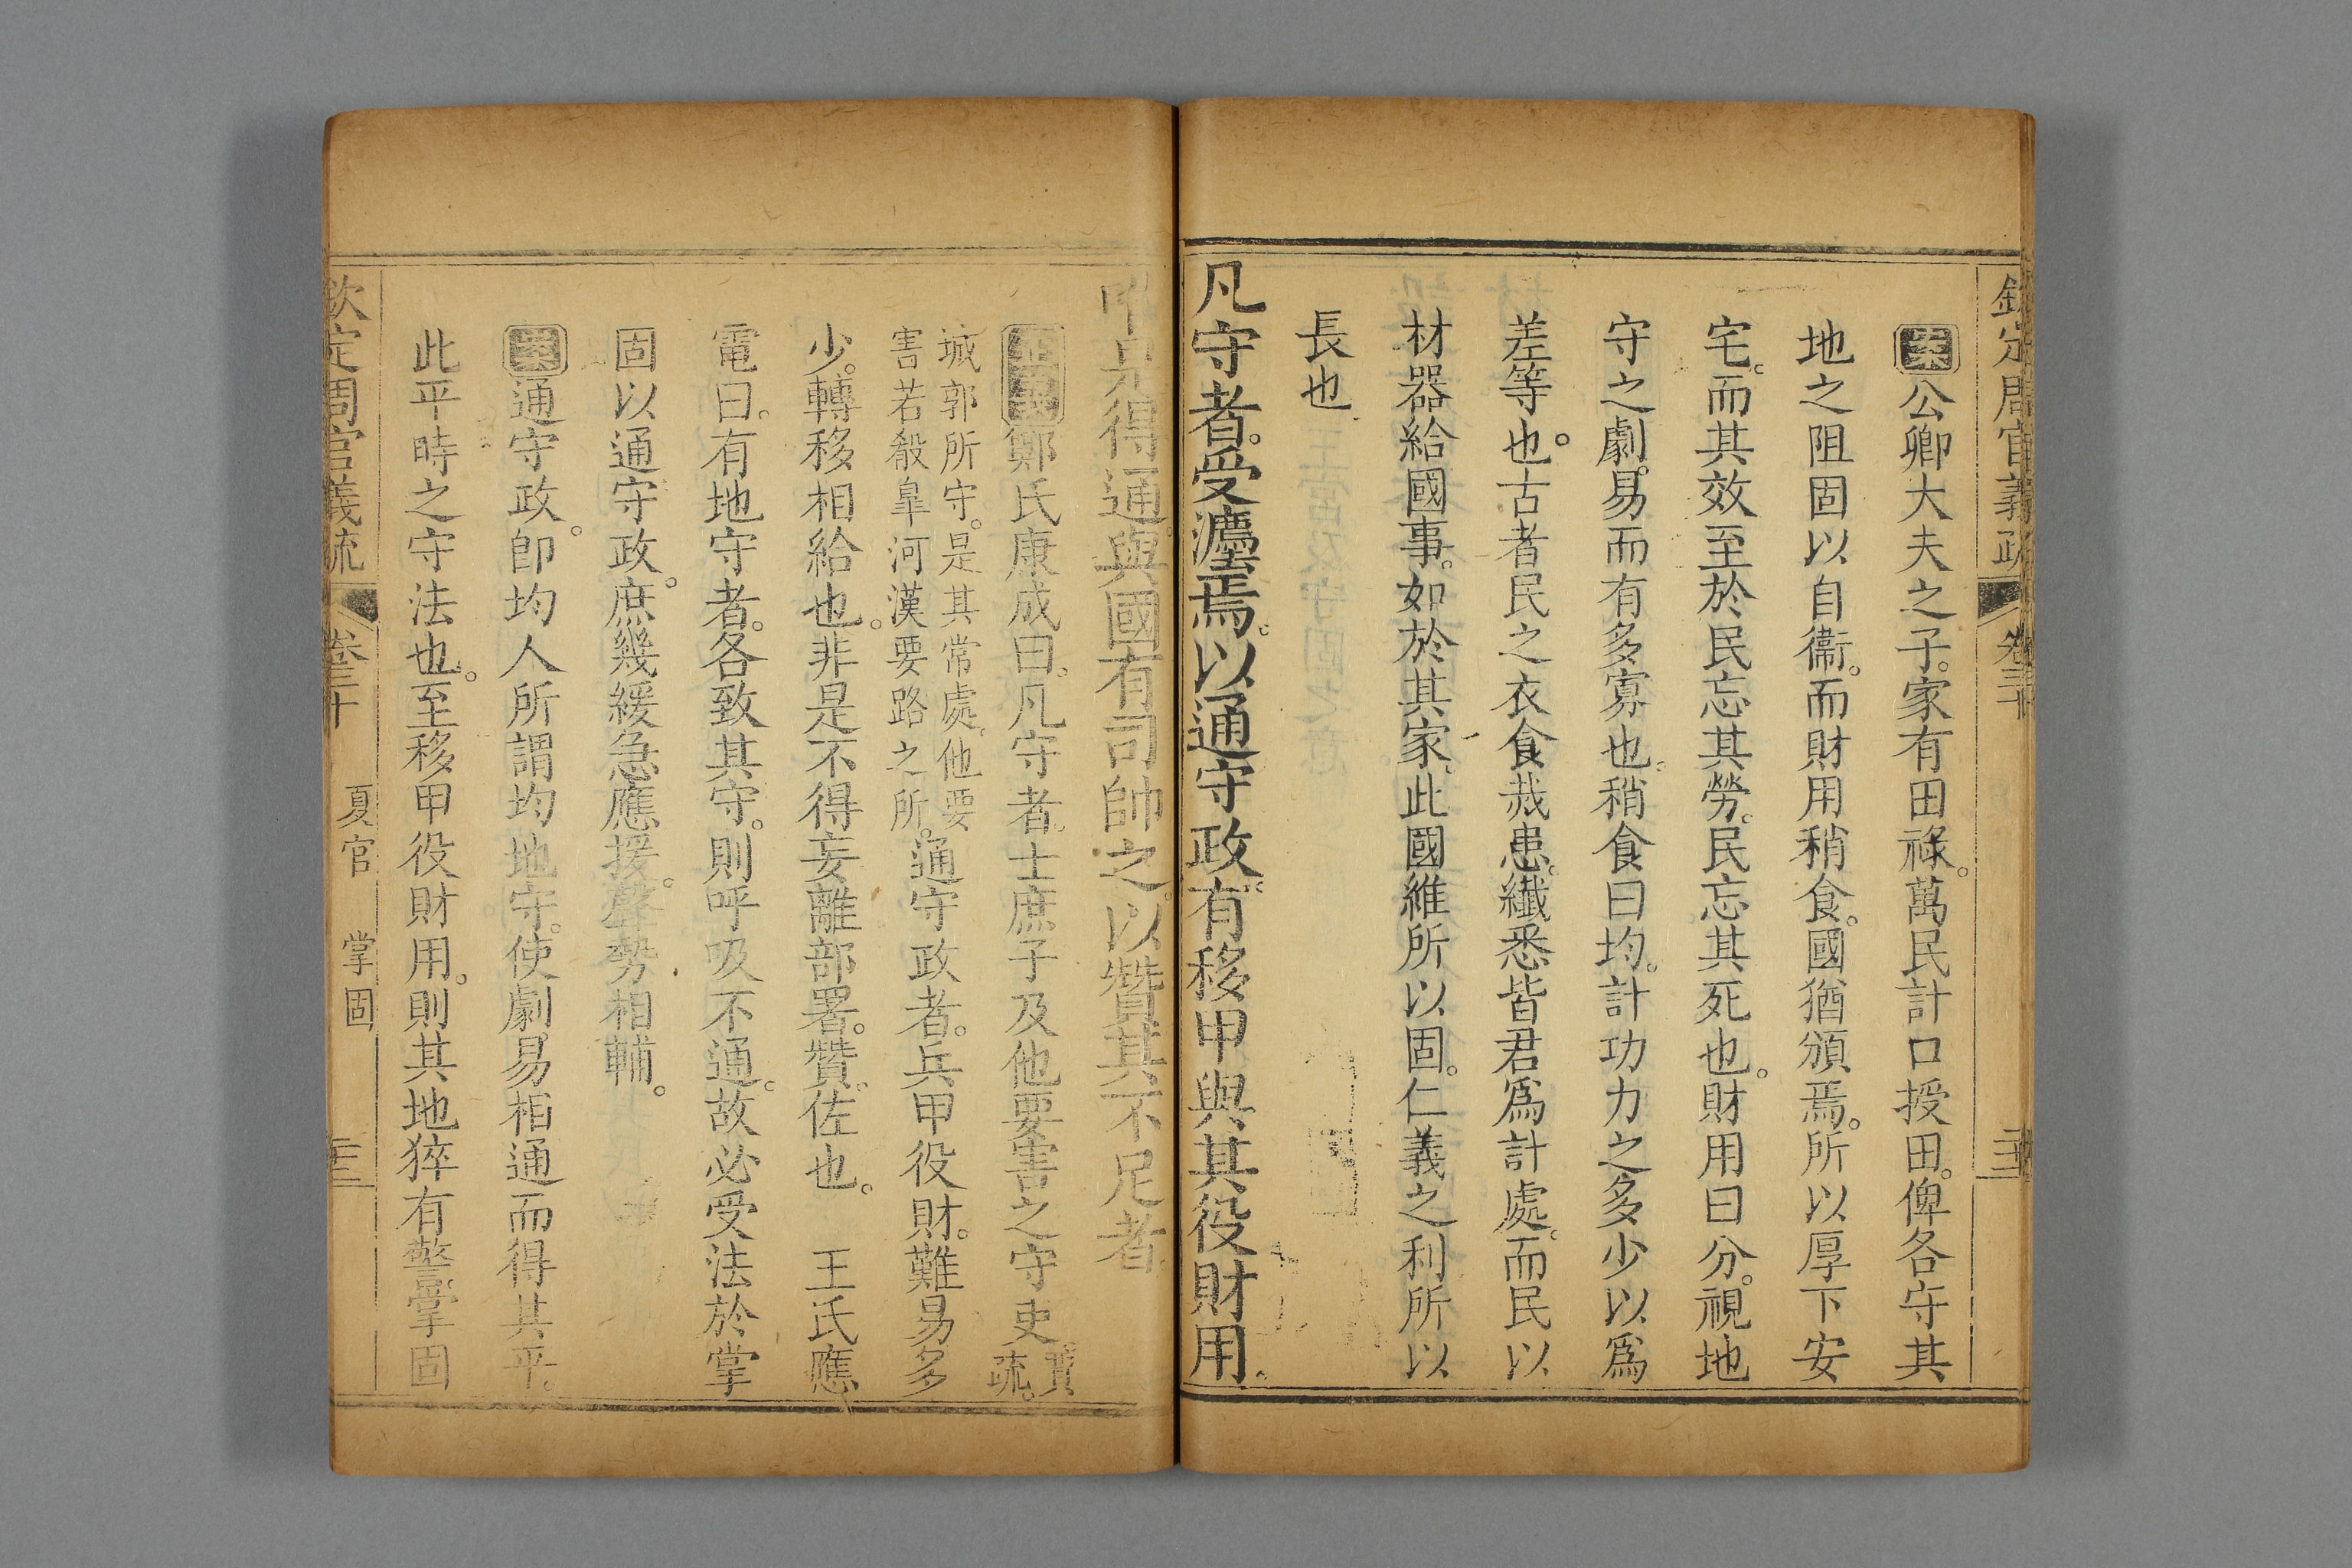 欽定周官義疏 卷三十
案公卿大夫之子。家有田祿。萬民計口授田。俾各守其
地之阻固以自衞。而財用稍食。國猶頒焉。所以厚下安
宅。而其效至於民忘其勞。民忘其死也。財用曰分。視地
守之劇易而有多寡也。稍食曰均。計功力之多少以爲
差等也。古者民之衣食烖患。纖悉皆君爲計處。而民以
材器給國事。如於其家。此國維所以固。仁義之利所以
長也
凡守者。受灋焉。以通守政。有移甲與其役財用。
唯是得通。與國有司帥之。以贊其不足者。
正義鄭氏康成曰。凡守者。士庶子及他要害之守吏。賈疏。
城郭所守。是其常處。他要
害若殽皐河漢要路之所。通守政者。兵甲役財。難易多
少。轉移相給也。非是不得妄離部署。贊。佐也。 王氏應
電曰。有地守者。各致其守。則呼吸不通。故必受法於掌
固以通守政。庶幾緩急應援。聲勢相輔。
案通守政。卽均人所謂均地守。使劇易相通而得其平。
此平時之守法也。至移甲役財用。則其地猝有警。掌固
欽定周官義疏 卷三十 夏官 掌固